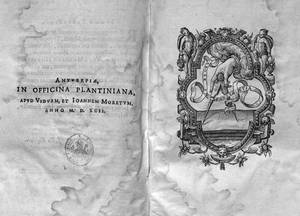 ANTVERPIÆ,
IN OFFICINA PLANTINIANA,
APVD VIDVAM, ET IOANNEM MORETVM.
ANNO M. D. XCII.